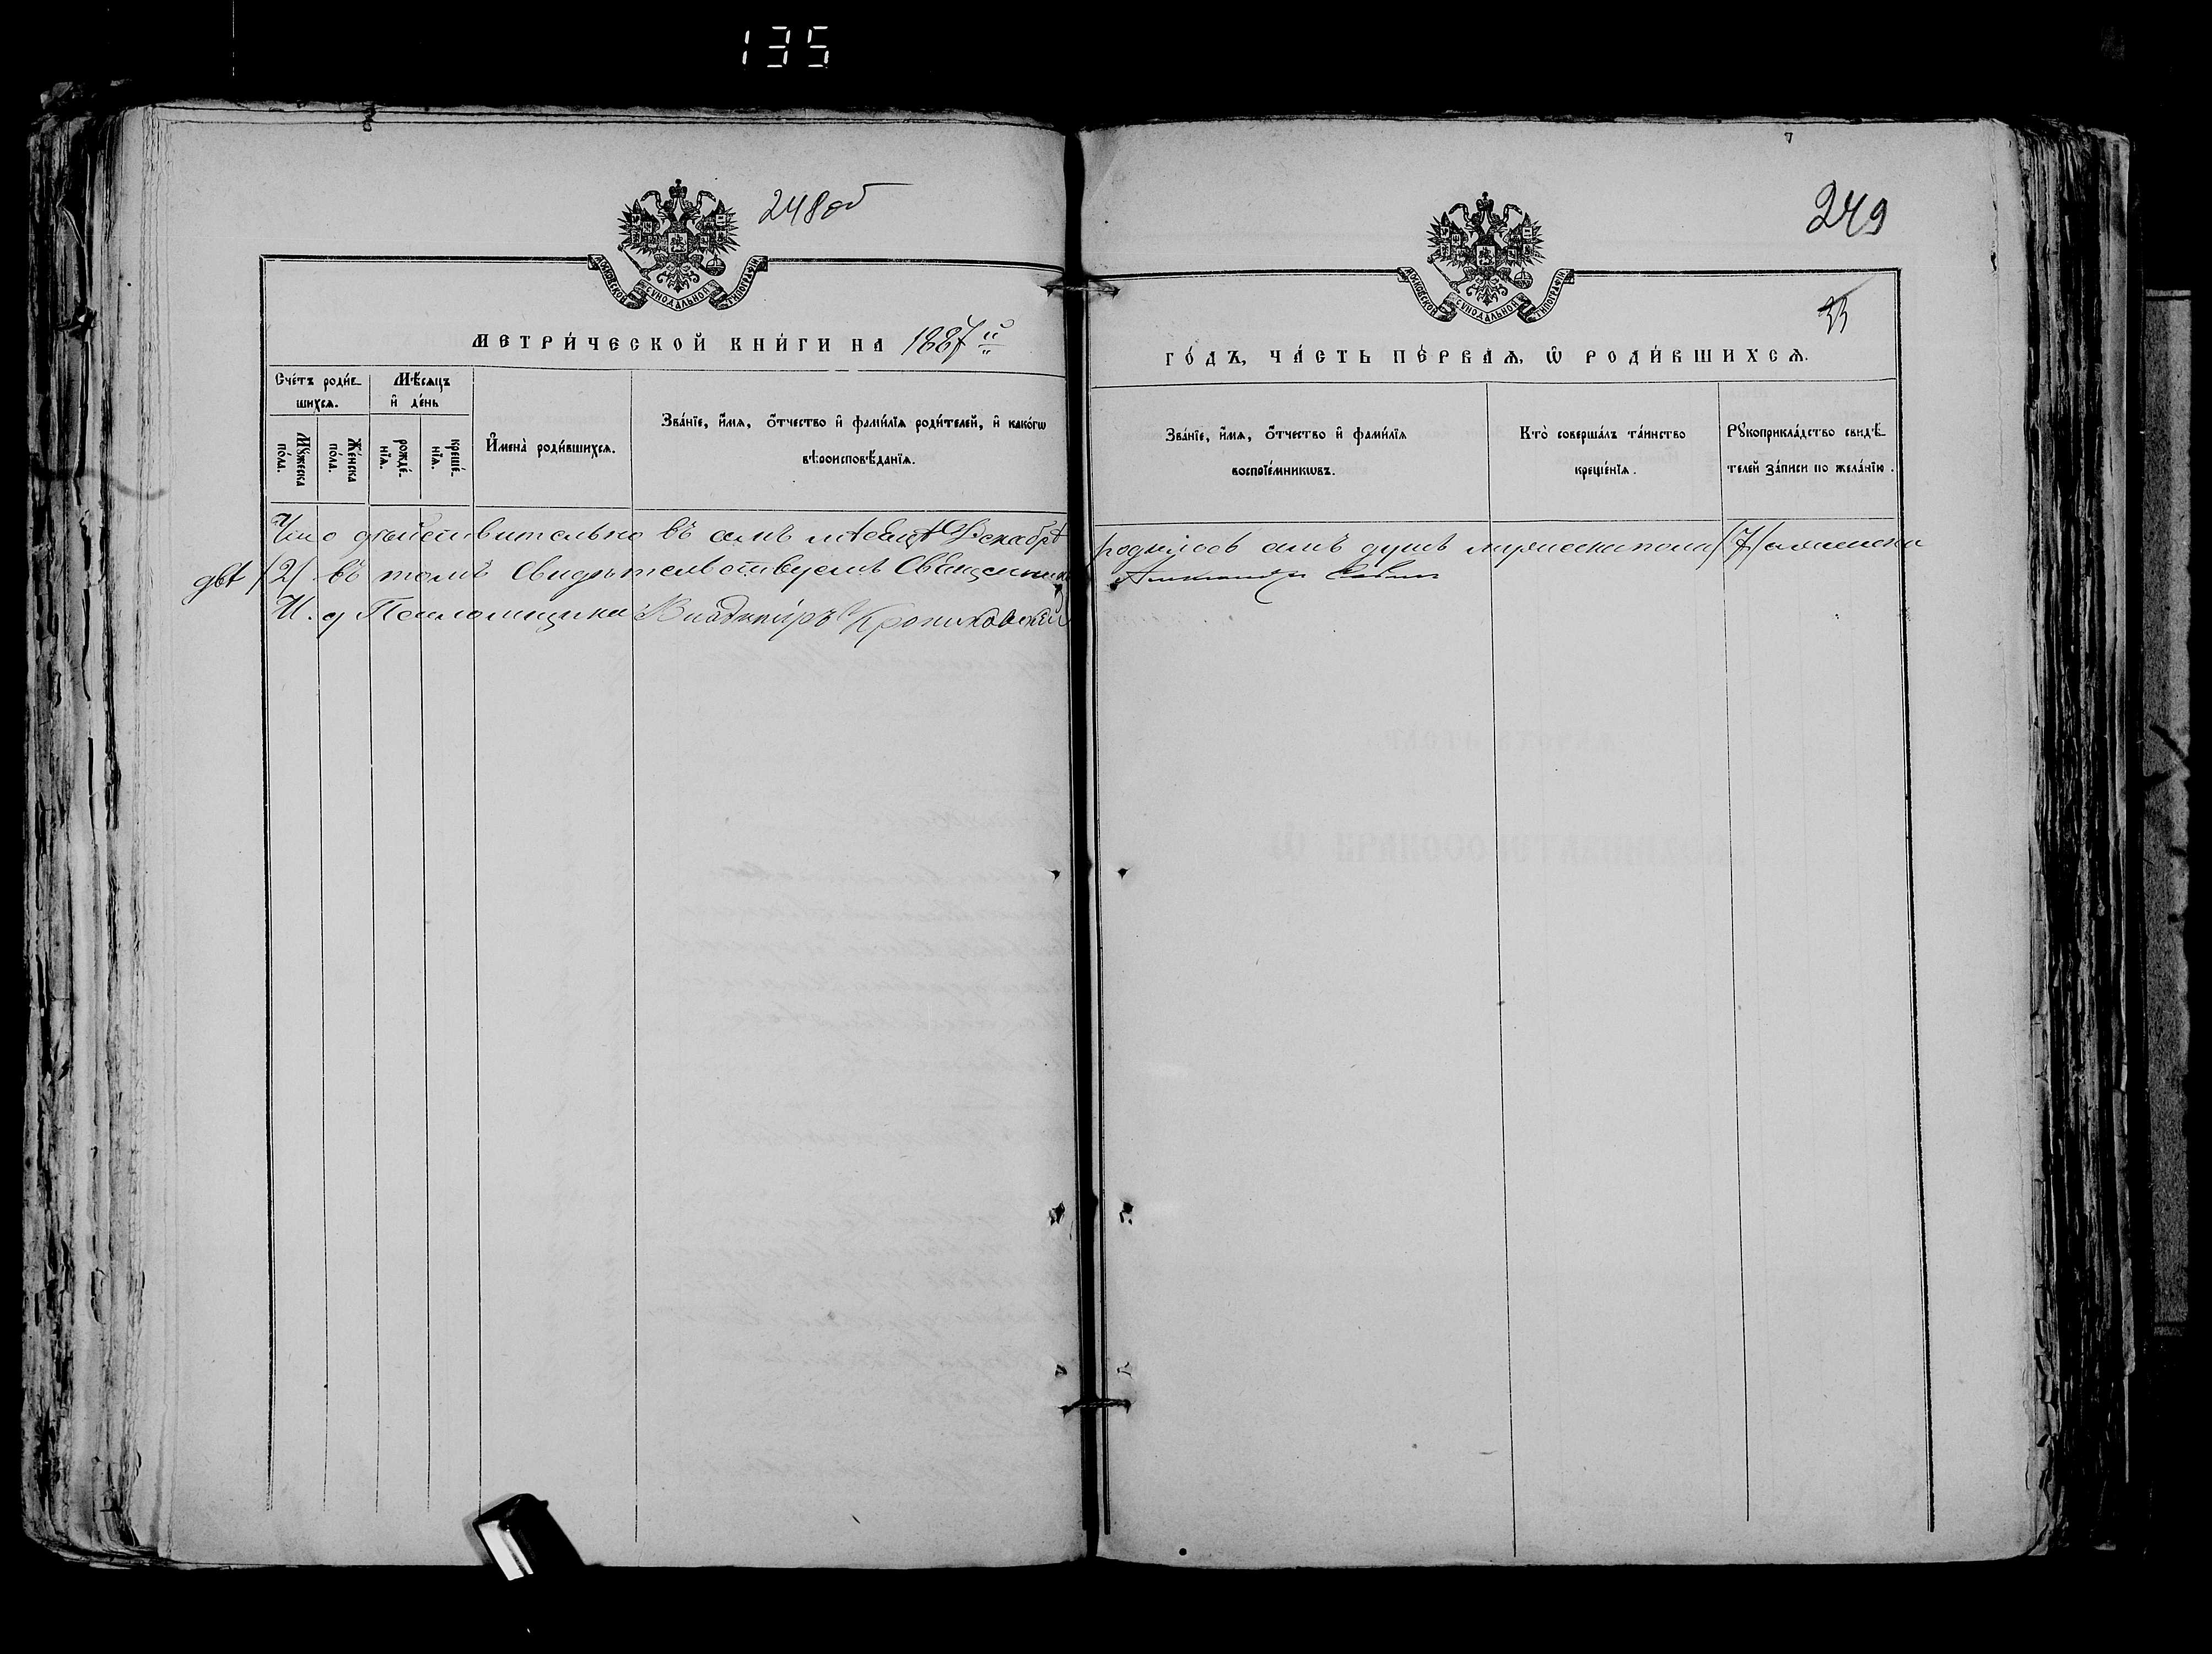 135
248 об
МОСКОВСКОЙ СѴНОДАЛЬНОЙ ТИПОГРАФІИ
МЕТРИ́ЧЕСКОЙ КНИ́ГИ НА 1887 й
Сче́тъ роди́вшихсѧ.
Мꙋ́жеска по́ла.
Же́нска по́ла.
Мѣ́сѧцъ и҆ де́нь
рожде́нїѧ.
креще́нїѧ.
И҆мена̀ роди́вшихсѧ.
Зва́нїе, и҆́мѧ, ѻ҆́тчество и҆ фами́лїѧ роди́телей, и҆ како́гѡ
вѣроисповѣ́данїѧ.
Что действительно въ семъ месяцѣ Декабрѣ
двѣ (2) въ томъ Свидѣтельствуемъ Священник
И. д Псаломщика Владиміръ
249
33
МОСКОВСКОЙ СѴНОДАЛЬНОЙ ТИПОГРАФІИ
ГО́ДЪ, ЧА́СТЬ ПЕ́РВАѦ, Ѡ҆ РОДИ́ВШИХСѦ.
Зва́нїе, и҆́мѧ, ѻ҆́тчество и҆ фами́лїѧ
воспрїе́мникѡвъ.
Кто̀ соверша́лъ та́инство
креще́нїѧ.
Рꙋкоприкла́дство свидѣ́телей за́писи по жела́нїю.
родилось семь душъ мужеска пола (7) а женска